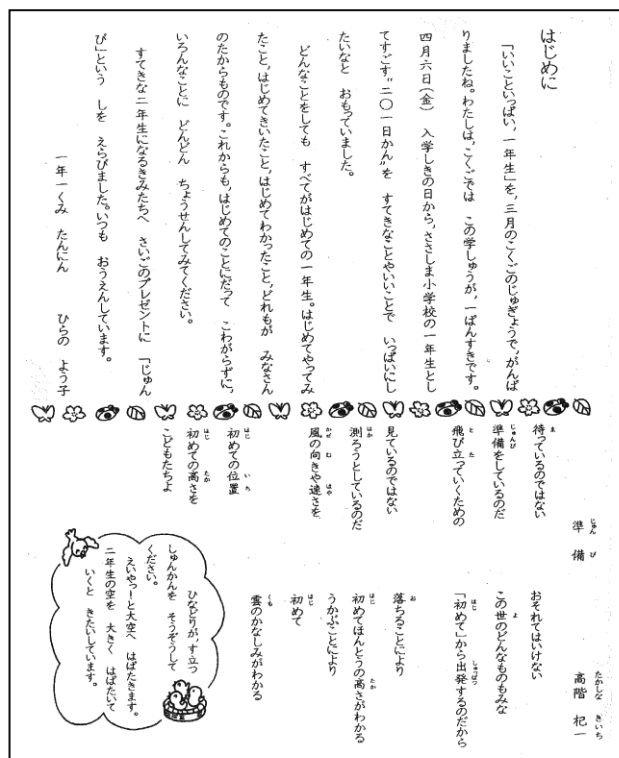 はじめに
「いいこといっぱい、一年生」を、三月のこくごのじゅぎょうで、がんば
りましたね。わたしは、こくごでは この学しゅうが、一ばんすきです。
四月六日(金) 入学しきの日から、ささしま小学校の一年生とし
てすごす“二〇一日かん”を すてきなことやいいことで いっぱいにし
たいなと おもっていました。
どんなことをしても すべてがはじめての一年生。はじめてやってみ
たこと、はじめてきいたこと、はじめてわかったこと、どれもが みなさん
のたからものです。これからも、はじめてのことにだって こわがらずに、
いろんなことに どんどん ちょうせんしてみてください。
すてきな二年生になるきみたちへ さいごのプレゼントに 「じゅん
び」という しを えらびました。いつも おうえんしています。
一年一くみ たんにん ひらの よう子
準備 じゅんび
高階 杞一 たかしな きいち
待っているのではない
準備をしているのだ
飛び立っていくための
見ているのではない
測ろうとしているのだ
風の向きや速さを
初めての位置
初めての高さを
こどもたちよ
おそれてはいけない
この世のどんなものもみな
「初めて」から出発するのだから
落ちることにより
初めてほんとうの高さがわかる
うかぶことにより
初めて
雲のかなしみがわかる
ひなどりが、す立つ
しゅんかんを そうぞうして
ください。
えいやっーと大空へ はばたきます。
二年生の空を 大きく はばたいて
いくと きたいしています。